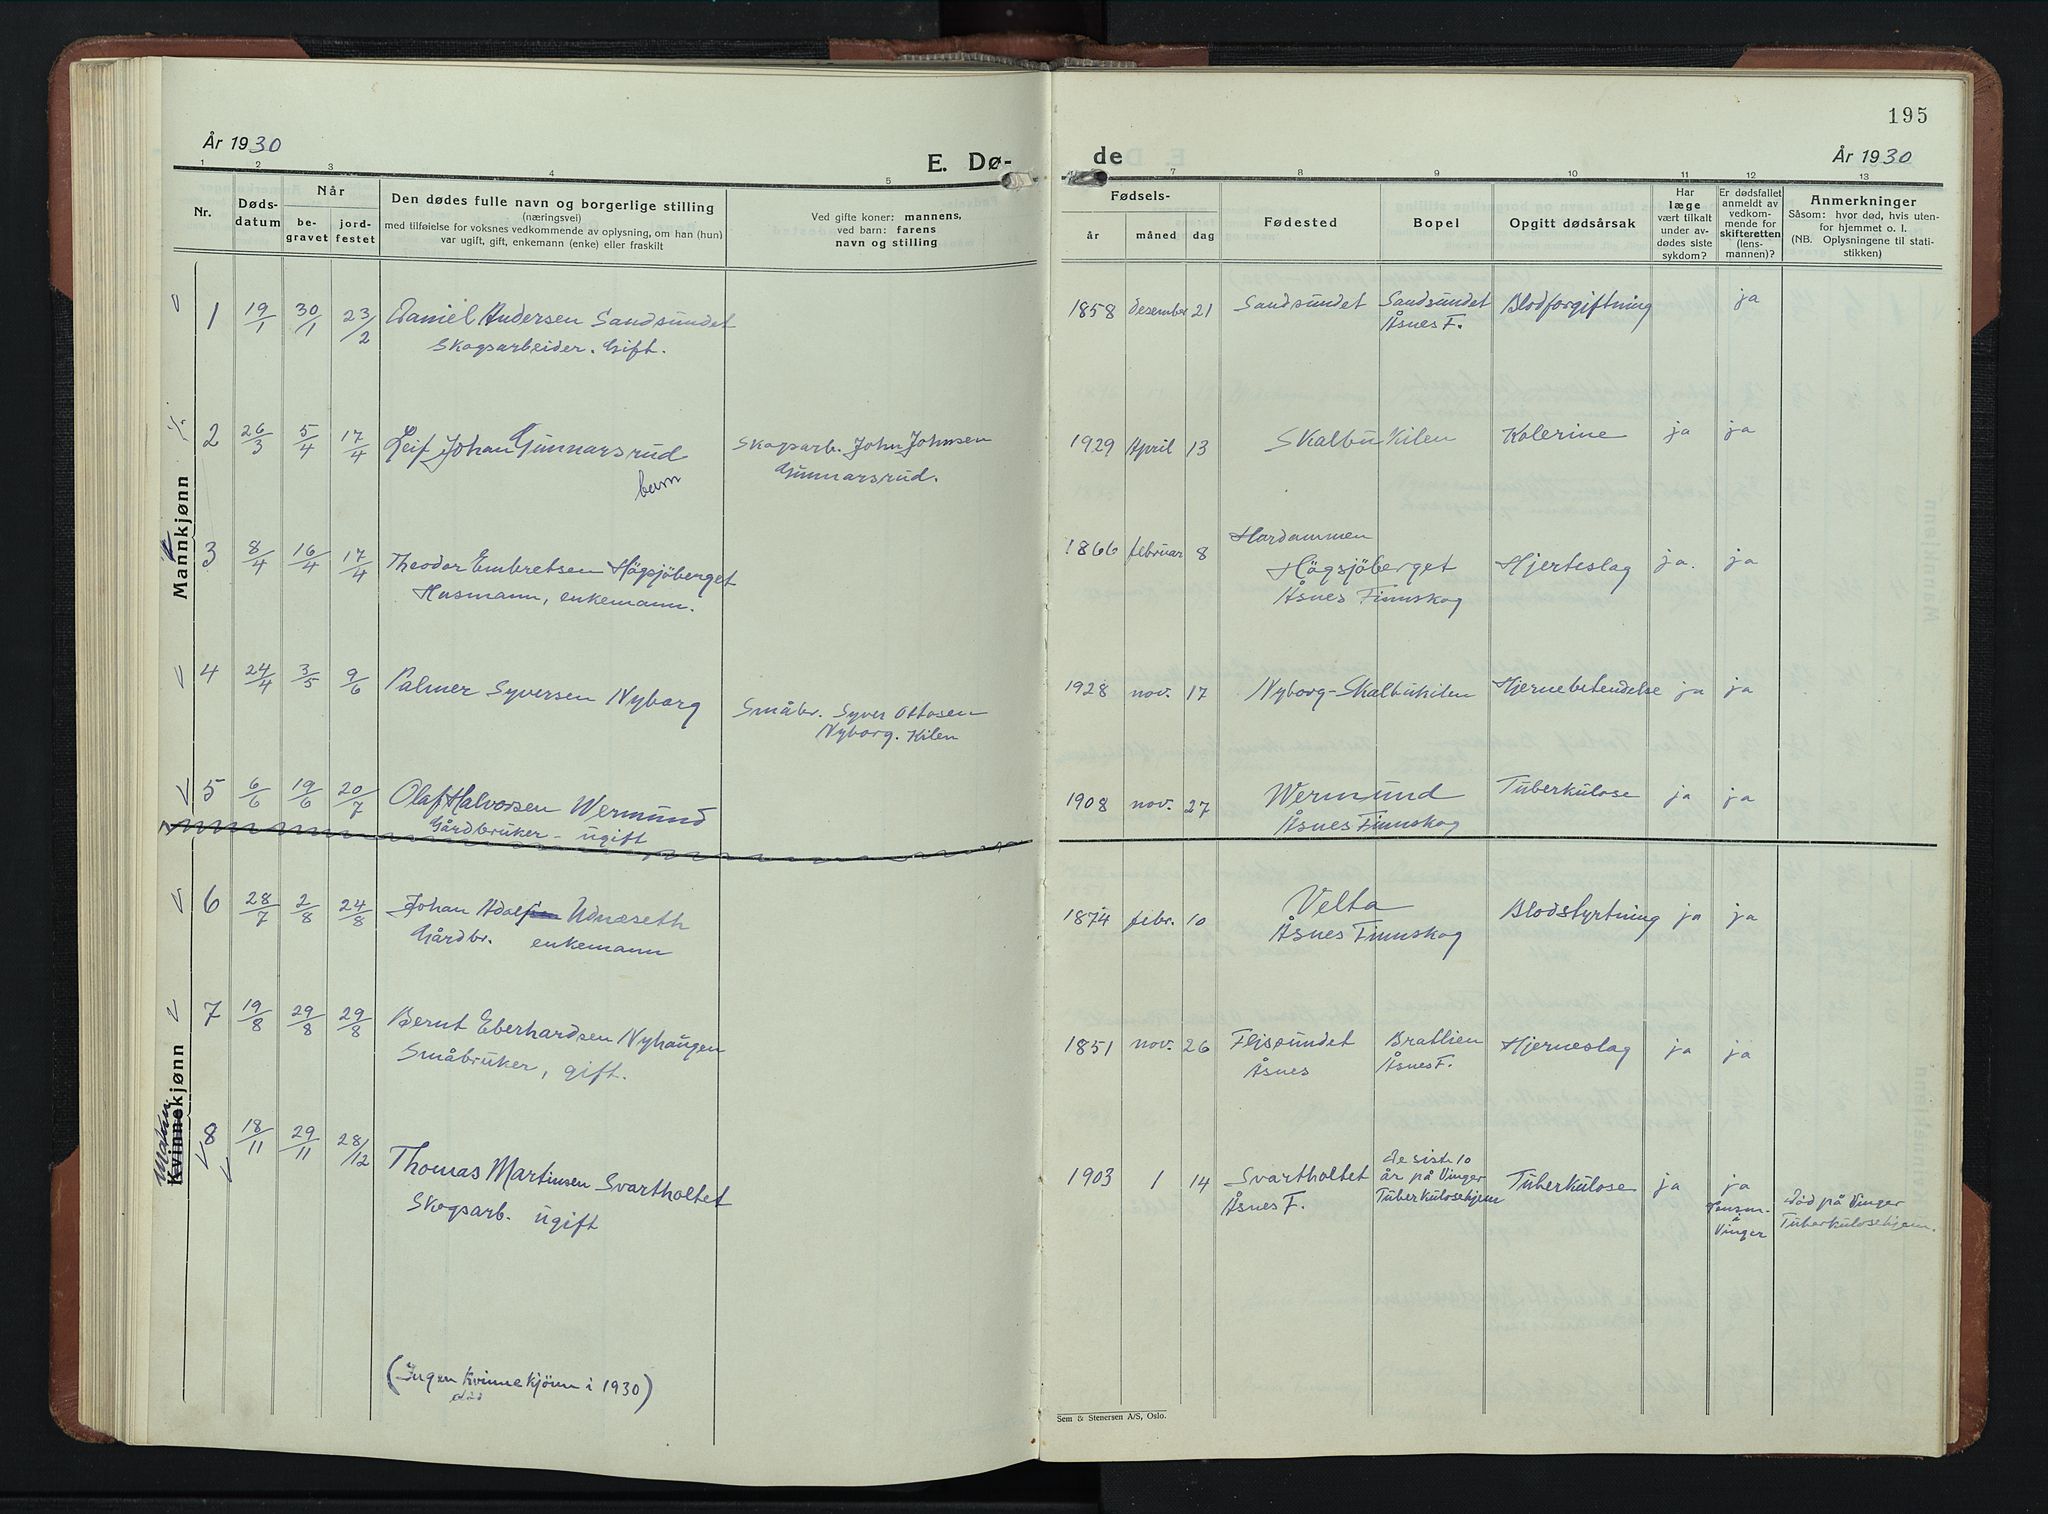 År 1930
E. Dø-
1 2 3 4 5
Nr.
Døds-
datum
Når
be-
gravet
jord-
festet
Den dødes fulle navn og borgerlige stilling
(næringsvei)
med tilføielse for voksnes vedkommende av oplysning, om han (hun)
var ugift, gift, enkemann (enke) eller fraskilt
Ved gifte koner: mannens,
ved barn: farens
navn og stilling
Mannkjønn
1 19/1 30/1 23/2 Daniel Andersen Sandsundet
Skogsarbeider. Gift.
2 26/3 5/4 17/4 Leif Johan Gunnarsrud
barn
Skogsarb. John Johnsen
Gunnarsrud.
3 8/4 16/4 17/4 Theodor Embretsen Högsjöberget
Husmann, enkemann.
4 24/4 3/5 9/6 Palmer Syversen Nyborg
Småbr. Syver Ottosen
Nyborg. Kilen
5 6/6 19/6 20/7 Olaf Halvorsen Wermund
Gårdbruker - ugift
6 28/7 2/8 24/8 Johan Adolf Udnæseth
Gårdbr. enkemann
7 19/8 29/8 29/8 Bernt Eberhardsen Nyhaugen
Småbruker, gift.
Kvinnekjønn
Mann
8 18/11 29/11 28/12 Thomas Martinsen Svartholtet
Skogsarb. ugift
(Ingen Kvinnekjönn i 1930)
död
195
de
År 1930
7 8 9 10 11 12 13
Fødsels-
år måned dag
Fødested
Bopel
Opgitt dødsårsak
Har
læge
vært tilkalt
under av-
dødes siste
sykdom?
Er dødsfallet
anmeldt av
vedkom-
mende for
skifteretten
(lens-
mannen)?
Anmerkninger
Såsom: hvor død, hvis uten-
for hjemmet o. l.
(NB. Oplysningene til stati-
stikken)
1858 desember 21 Sandsundet Sandsundet Blodforgiftning ja
Åsnes F.
1929 April 13 Skalbukilen Kolerine ja ja
Hardammen
1866 februar 8 Högsjöberget Hjerteslag ja. ja
Åsnes Finnskog
1928 nov. 17 Nyborg-Skalbukilen Hjernebetendelse ja ja
1908 nov. 27 Wermund Tuberkulose ja ja
Åsnes Finnskog
1874 febr. 10 Velta Blodstyrtning ja ja
Åsnes Finnskog
1851 nov. 26 Flisundet Bratlien Hjerneslag ja ja
Åsnes Åsnes F.
1903 1 14 Svartholtet
Åsnes F.
De siste 10
år på Vinger
Tuberkulosehjem
Tuberkulose ja ja
Lensm.
i
Vinger
Död på Vinger
Tuberkulosehjem.
Sem & Stenersen A/S, Oslo.